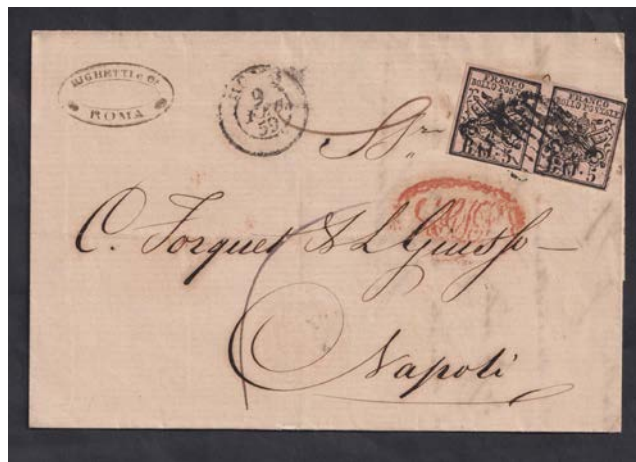 RIGHETTI e C.
ROMA
ROMA
9
FEB.
59
FRANCO
BOLLO POSTALE
BAJ. 5
FRANCO
BOLLO POSTALE
BAJ. 5
Sgr.
C. Forquet & L Giusso
Napoli